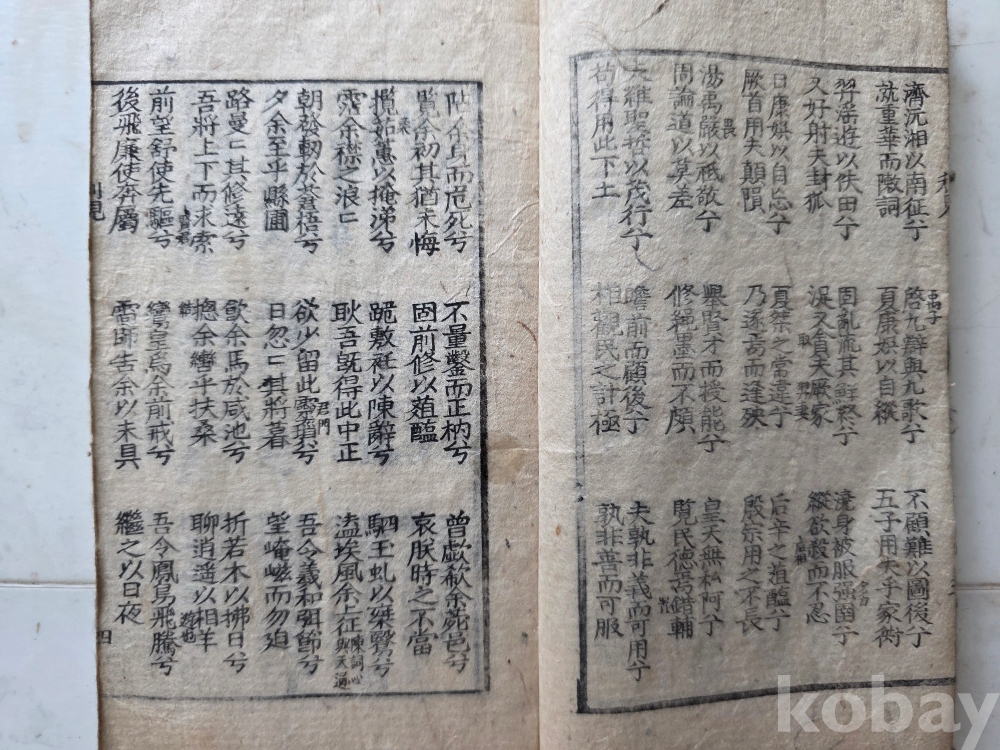 濟沅湘以南征兮 啓九辯與九歌兮 不顧難以圖後兮
禹子
就重華而敶詞 夏康娛以自縱 五子用失乎家衖
羿淫遊以佚田兮 固亂流其鮮終兮 澆身被服强圉兮
又好射夫封狐 浞又貪夫厥家 縱欲殺而不忍
取
日康娛以自忘兮 夏桀之常違兮 后辛之菹醢兮
厥首用夫顚隕 乃遂焉而逢殃 殷宗用之不長
湯禹嚴以祗敬兮 擧賢才而授能兮 皇天無私阿兮
畏
周論道以莫差 修繩墨而不頗 覽民德焉錯輔
夫維聖哲以茂行兮 瞻前而顧後兮 夫孰非義而可用兮
苟得用此下土 相觀民之計極 孰非善而可服
阽余身而危死兮 不量鑿而正枘兮 曾歔欷余鬱邑兮
覽余初其猶未悔 固前修以菹醢 哀朕時之不當
攬茹蕙以掩涕兮 跪敷衽以陳辭兮 駟玉虬以椉鷖兮
霑余襟之浪〻 耿吾旣得此中正 溘埃風余上征
陳詞 與天通
朝發軔於蒼梧兮 欲少留此靈瑣兮 吾令羲和弭節兮
君門
夕余至乎縣圃 日忽〻其將暮 望崦嵫而勿迫
路曼〻其修遠兮 飮余馬於咸池兮 折若木以拂日兮
吾將上下而求索 摠余轡乎扶桑 聊消遥以相羊
前望舒使先驅兮 鸞皇爲余前戒兮 吾令鳳鳥飛騰兮
後飛廉使奔屬 雷師告余以未具 繼之以日夜
四
kobay